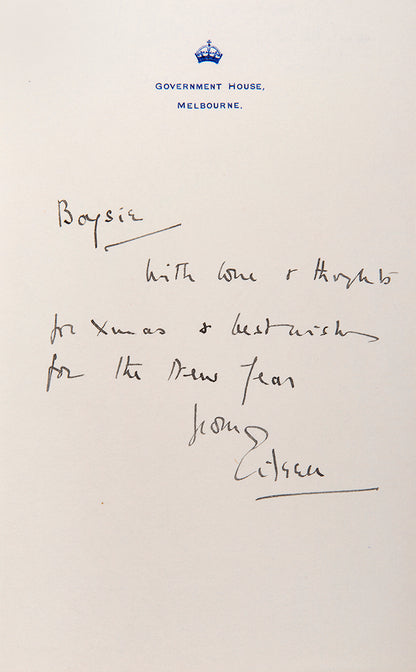 GOVERNMENT HOUSE,
MELBOURNE.
Boysie
With love & thoughts
for Xmas & best wishes
for the New Year
from
Eileen